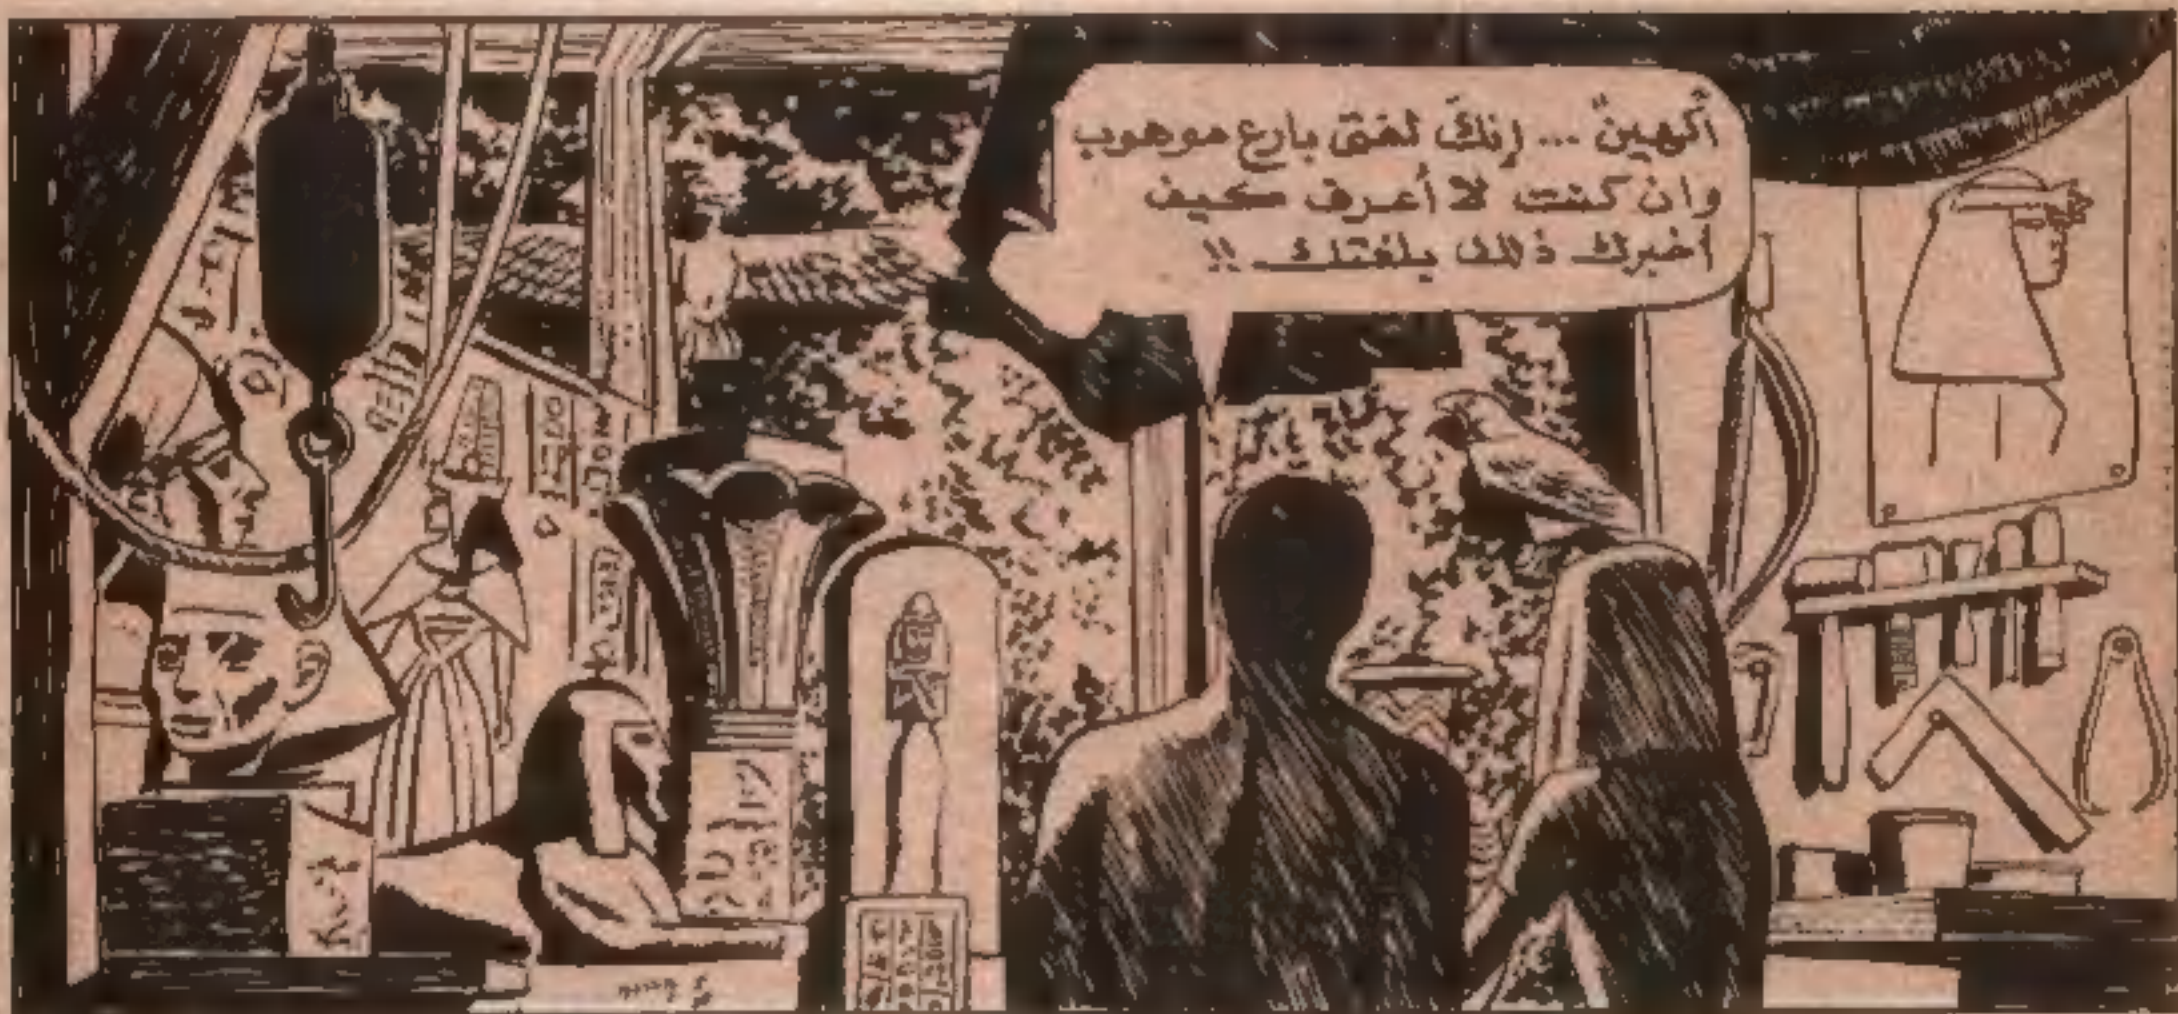 أكهينّ ... إنكَ لفتى بارع موهوب
وان كنت لا أعرف كيف
أخبرك ذلك بلغتك !!